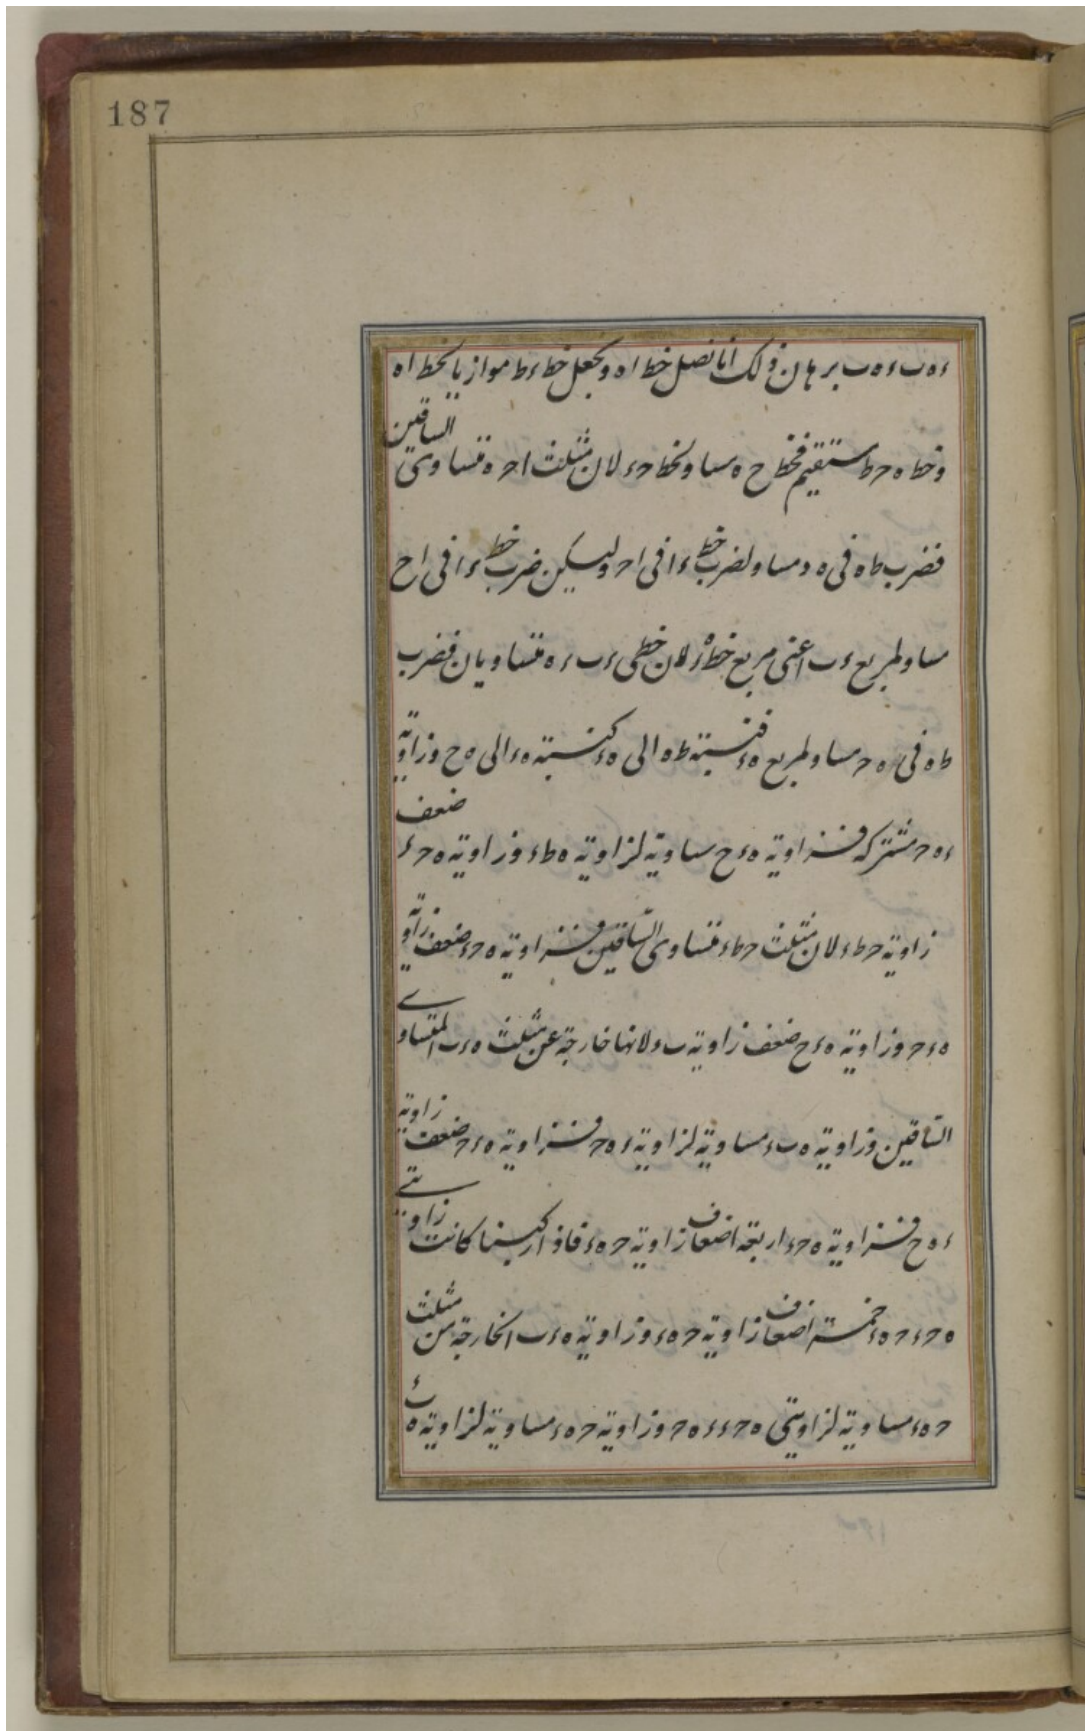 187
ءه ب ءه ب برهان ذلك انا نصل خط اه ونجعل خط ءط موازيا لخط اه
وخط ه ح ط مستقيم فخط ح ه مساو لخط ح ء لان مثلث ا ح ه متساوى الساقين
فضرب ط ه فى ه ح مساو لضرب خط ء ا فى ا ح وليكن ضرب خط ء ا فى ا ح
مساو لمربع ء ب اعنى مربع خط ه ء لان خطى ء ب ء ه متساويان فضرب
ط ه فى ه ح مساو لمربع ه ء فنسبة ط ه الى ه ء كنسبة ه ء الى ه ح وزاوية
ء ه ح مشتركه فزاوية ه ء ح مساوية لزاوية ه ط ء وزاوية ه ح ء ضعف
زاوية ح ط ء لان مثلث ح ط ء متساوى الساقين فزاوية ه ح ء ضعف زاوية
ه ء ح وزاوية ه ء ح ضعف زاوية ب ء لانها خارجة عن مثلث ه ء ب المتساوى
الساقين وزاوية ه ب ء مساوية لزاوية ء ه ح فزاوية ه ء ح ضعف زاوية
ء ه ح فزاوية ه ح ء اربعة اضعاف زاوية ح ه ء فاذا ركبنا كانت زاويتى
ه ح ء ح ه ء خمسة اضعاف زاوية ح ه ء وزاوية ه ء ب الخارجة من مثلث
ح ه ء مساوية لزاويتى ه ح ء ء ه ح وزاوية ح ه ء مساوية لزاوية ه ب ء